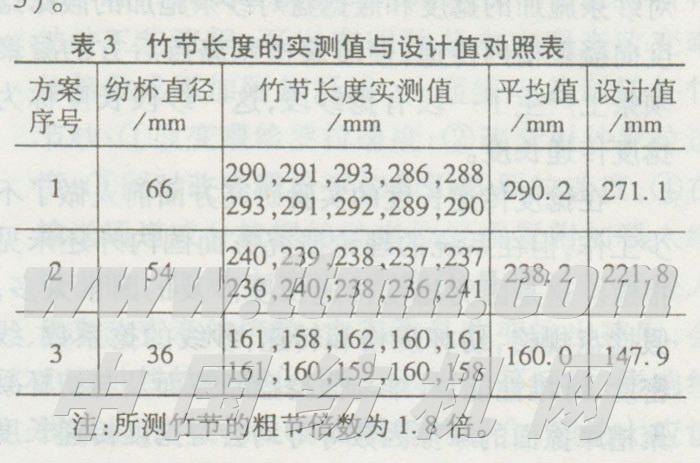 表 3 竹节长度的实测值与设计值对照表
方案 纺杯直径 竹节长度实测值 平均值 设计值
序号 /mm /mm /mm /mm
290,291,293,286,288
1 66 290.3 271.1
293,291,292,289,290
240,239,238,237,237
2 54 238.2 221.8
236,240,238,236,241
161,158,162,160,161
3 36 160.0 147.9
161,160,159,160,158
注:所测竹节的粗节倍数为 1.8 倍。
www.ttmn.com
中国纺机网